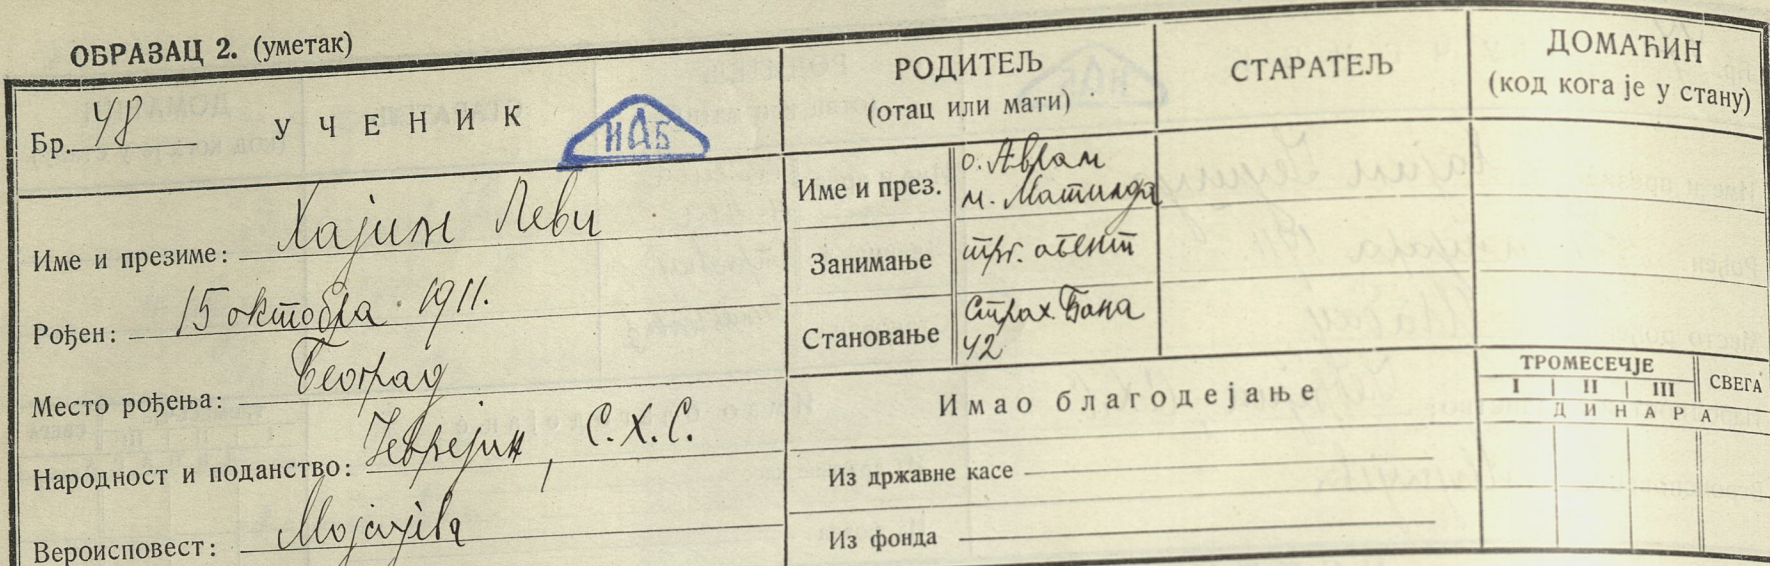 ОБРАЗАЦ 2. (уметак)
Бр. 48 УЧЕНИК
ИАБ
Име и презиме: Хајим Леви
Рођен: 15 октобра 1911.
Место рођења: Београд
Народност и поданство: Јеврејин, С.Х.С.
Вероисповест: Мојсијева
РОДИТЕЉ
(отац или мати)
СТАРАТЕЉ
ДОМАЋИН
(код кога је у стану)
Име и през. о. Аврам
м. Матилда
Занимање трг. агент
Становање Страх. Бана
42
Имао благодејање
ТРОМЕСЕЧЈЕ
I II III СВЕГА
ДИНАРА
Из државне касе
Из фонда